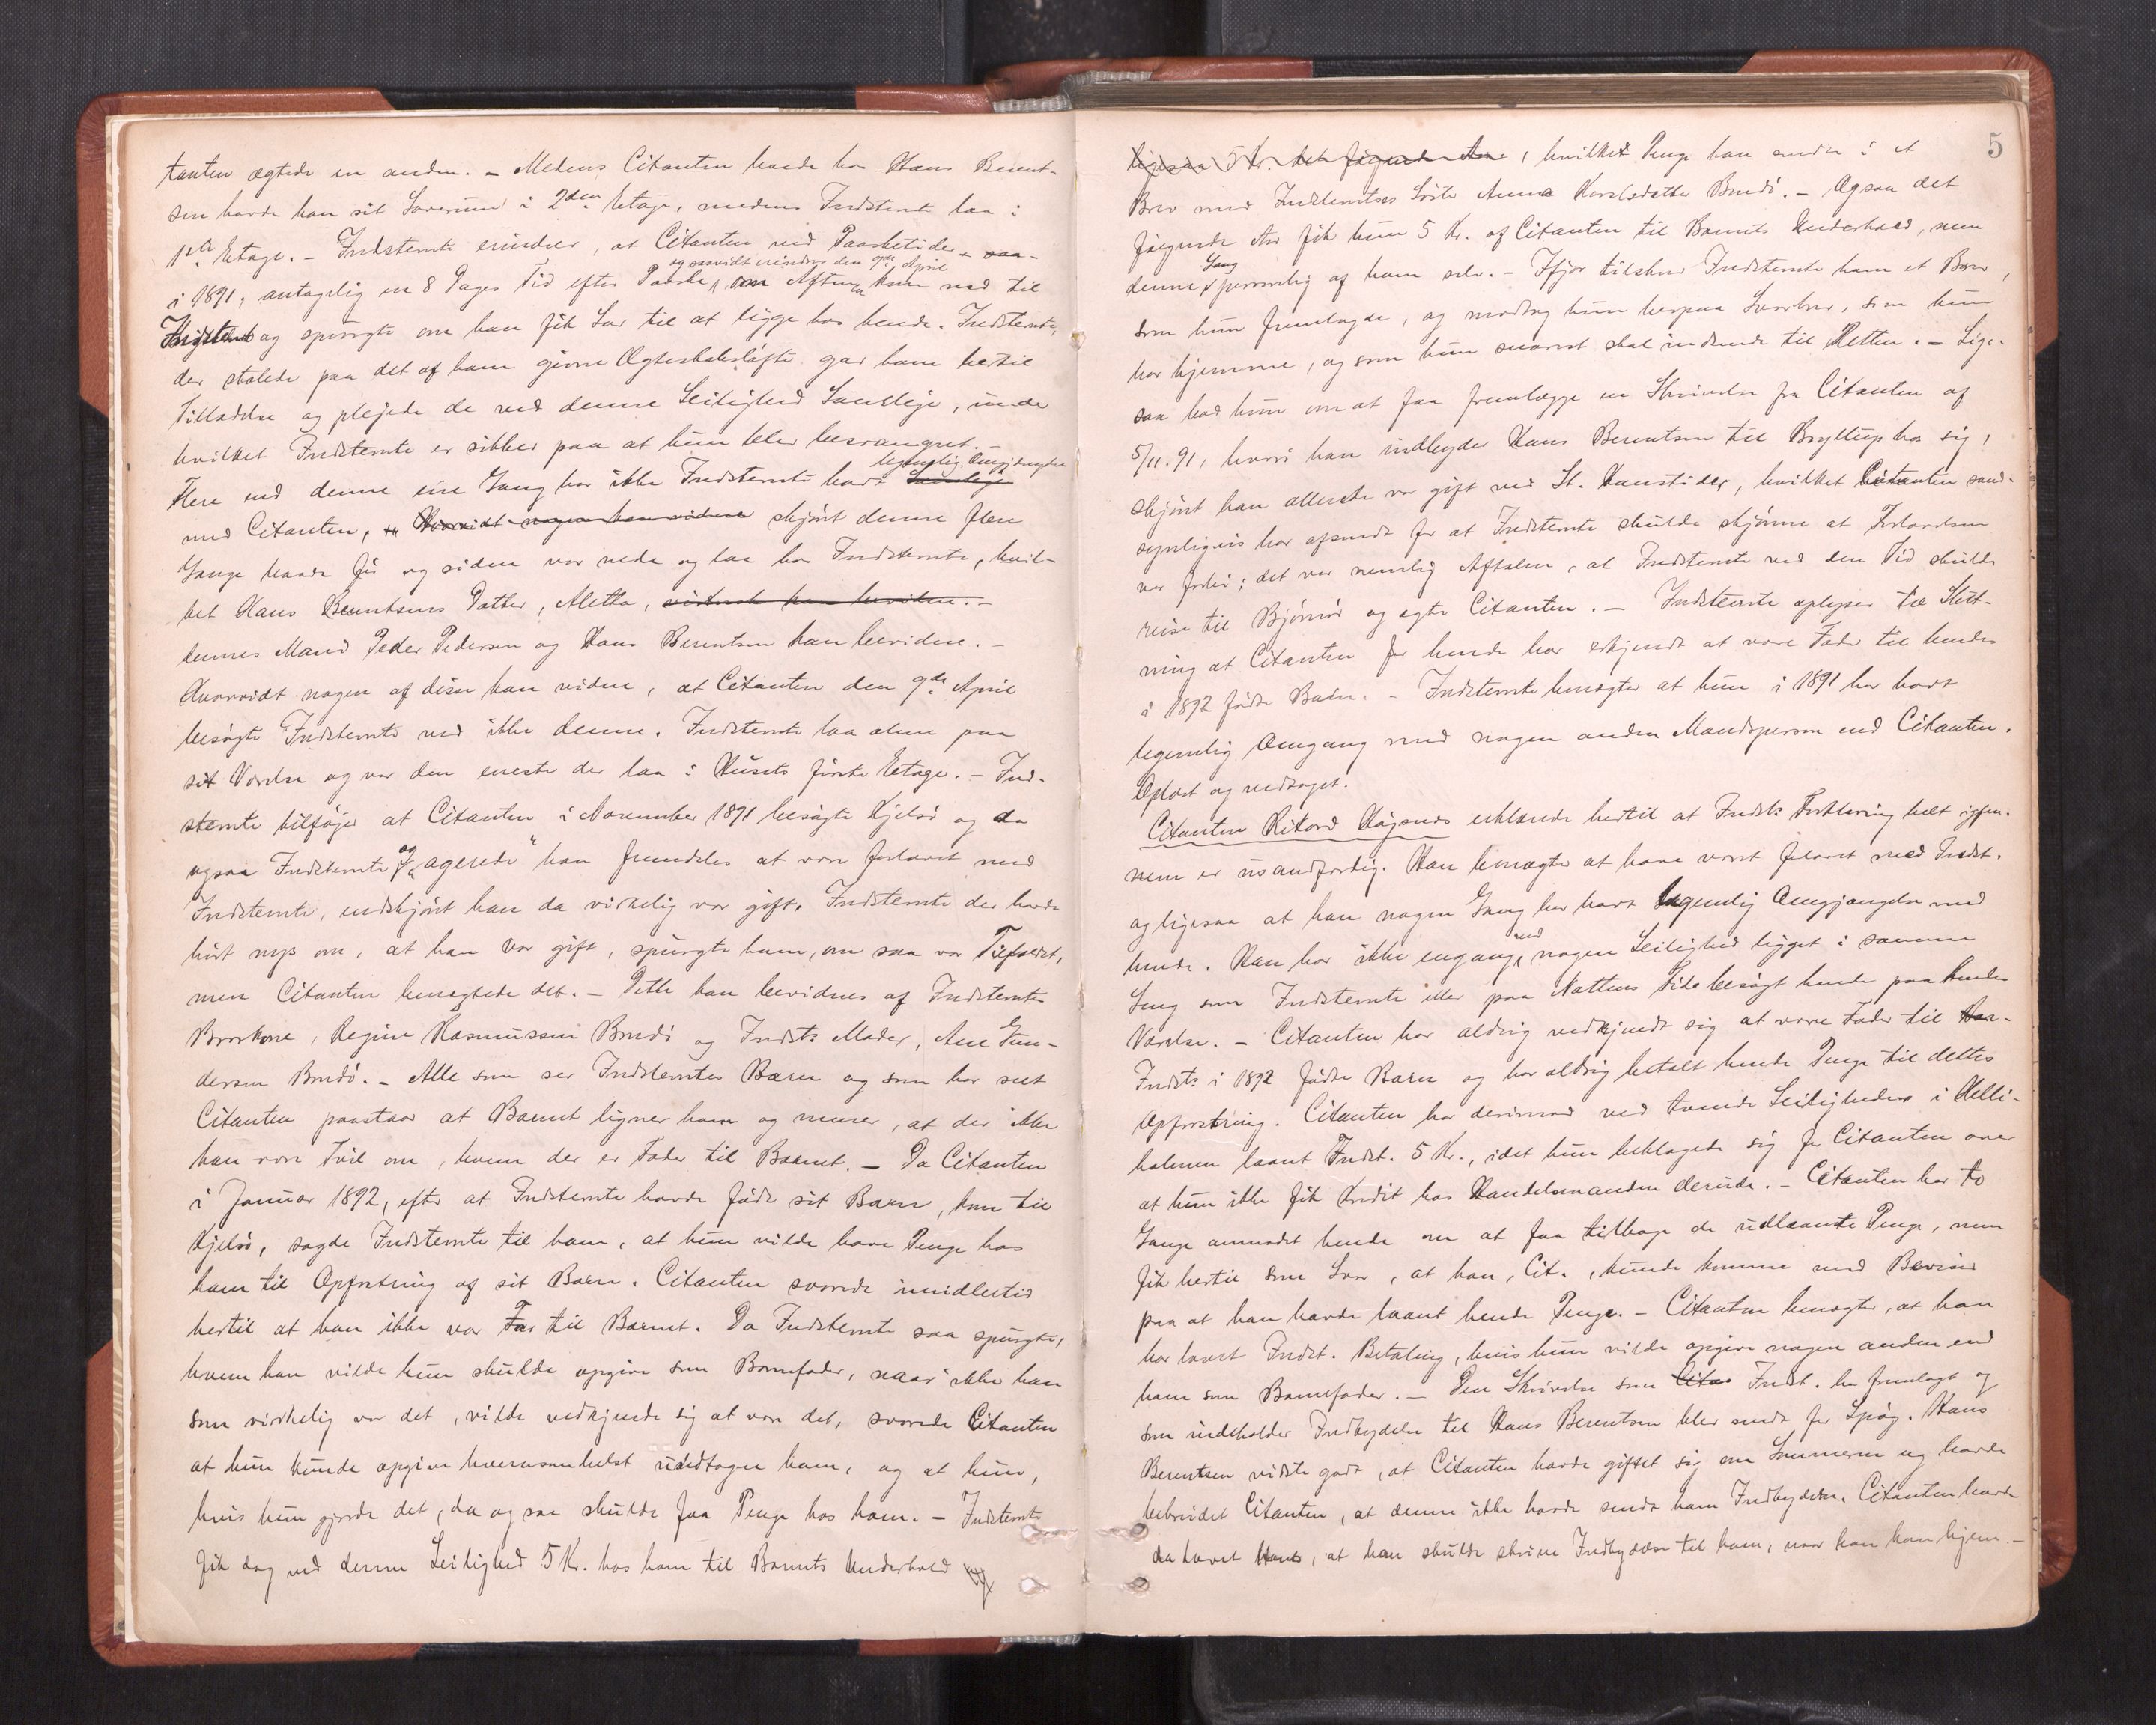 tanten ægtede en anden. – Medens Citanten havde hos Hans Berent-
sen havde han sit Soverum i 2den Etage, medens Indstemte laa i
1ste Etage. – Indstemte erindrer, at Citanten ved Paasketider – saa-
og saavidt erindres den 9de April
i 1891, antagelig en 8 Dages Tid efter Paaske, om Aftenen kom ned til
Indstemte og spurgte om han fik Lov til at ligge hos hende. Indstemte,
der stolede paa det af ham givne Ægteskabsløfte gav ham hertil
Tilladelse og plejede de ved denne Leilighed Samleje, under
hvilket Indstemte er sikker paa at hun blev besvangret. –
legemlig Omgjængelse
Flere end denne ene Gang har ikke Indstemte havt Samleje
med Citanten, Hvorvidt nogen kan vidne skjønt denne flere
Gange baade før og siden var nede og laa hos Indstemte, hvil-
ket Hans Berentsens Datter, Aletta,
hennes Mand Peder Pedersen og Hans Berentsen kan bevidne. –
Hvorvidt nogen af disse kan vidne, at Citanten den 9de April
besøgte Indstemte ved ikke denne. Indstemte laa alene paa
sit Værelse og var den eneste der laa i Husets første Etage. – Ind-
stemte tilføjer at Citanten i November 1891 besøgte Kjelsø og da
ogsaa Indstemte og "agerede" han fremdeles at være forlovet med
Indstemte, endskjønt han da virkelig var gift. Indstemte der havde
hørt nys om, at han var gift, spurgte ham, om saa var Tilfældet,
men Citanten benægtede det. – Dette kan bevidnes af Indstemtes
Brorkone, Regine Rasmussen Brudø og Indsts Moder, Ane Gun-
dersen Brudø. – Alle som ser Indstemtes Barn og som har seet
Citanten paastaar at Barnet ligner ham og mener, at der ikke
kan være Tvil om, hvem der er Fader til Barnet. – Da Citanten
i Januar 1892, efter at Indstemte havde født sit Barn, kom til
Kjelsø, sagde Indstemte til ham, at hun vilde have Penge hos
ham til Opfostring af sit Barn. Citanten svarede imidlertid
hertil at han ikke var Far til Barnet. Da Indstemte saa spurgte,
hvem han vilde hun skulde opgive som Barnefader, naar ikke han
som virkelig var det, vilde vedkjende sig at være det, svarede Citanten
at hun kunde opgive hvemsomhelst undtagen ham, og at hun,
hvis hun gjorde det, da ogsaa skulde faa Penge hos ham. – Indstemte
fik dog ved denne Leilighed 5 Kr. hos ham til Barnets Underhold og
5
ligesaa 5 Kr. det følgende Aar, hvilket Penge han sendte i et
Brev med Indstemtes Søster Anna Karlsdatter Brudø. – Ogsaa det
følgende Aar fik hun 5 Kr. af Citanten til Barnets Underhold, men
denne Gang personlig af ham selv. – Ifjor tilskrev Indstemte ham et Brev,
som hun fremlagde, og modtog hun herpaa Svarbrev, som hun
har hjemme, og som hun snarest skal indsende til Retten. – Lige-
saa bad hun om at faa fremlægge en Skrivelse fra Citanten af
5/11. 91, hvori han indbyder Hans Berentsen til Bryllup hos sig,
skjønt han allerede var gift ved St. Hanstider, hvilket Citanten sand-
synligvis har afsendt for at Indstemte skulde skjønne at Forlovelsen
var forbi; det var nemlig Aftalen, at Indstemte ved den Tid skulde
reise til Bjørnør og ægte Citanten. – Indstemte oplyser til Slut-
ning at Citanten for hende har erkjendt at være Fader til hendes
i 1892 fødte Barn. – Indstemte benægter at hun i 1891 har havt
legemlig Omgang med nogen anden Mandsperson end Citanten.
Oplæst og vedtaget.
Citanten Rikard Høgsnes erklærede hertil at Indsts Forklaring helt igjen-
nem er usandfærdig. Han benægter at have været forlovet med Indst.
og ligesaa at han nogen Gang har havt legemlig Omgjængelse med
hende. Han har ikke engang ved nogen Leilighed ligget i samme
Seng som Indstemte eller paa Nattens Tide besøgt hende paa hendes
Værelse. – Citanten har aldrig vedkjendt sig at være Fader til
Indsts i 1892 fødte Barn og har aldrig betalt hende Penge til dettes
Opfostring. Citanten har derimod ved tvende Leiligheder i Kelli-
holmen laant Indst. 5 Kr., idet hun beklagede sig for Citanten over
at hun ikke fik Kredit hos Handelsmanden derude. – Citanten har to
Gange anmodet hende om at faa tilbage de udlaante Penge, men
fik hertil som Svar, at han, Cit., kunde komme med Beviser
paa at han havde laant hende Penge. – Citanten benægter, at han
har lovet Indst. Betaling, hvis hun vilde opgive nogen anden end
ham som Barnefader. – Den Skrivelse som Citan Indst. har fremlagt og
som indeholder Indbydelse til Hans Berentsen blev sendt for Spøg. Hans
Berentsen vidste godt, at Citanten havde giftet sig om Sommeren og havde
bebreidet Citanten, at denne ikke havde sendt ham Indbydelse. Citanten havde
da lovet Hans, at han skulde skrive Indbydelse til ham, naar han kom hjem. –